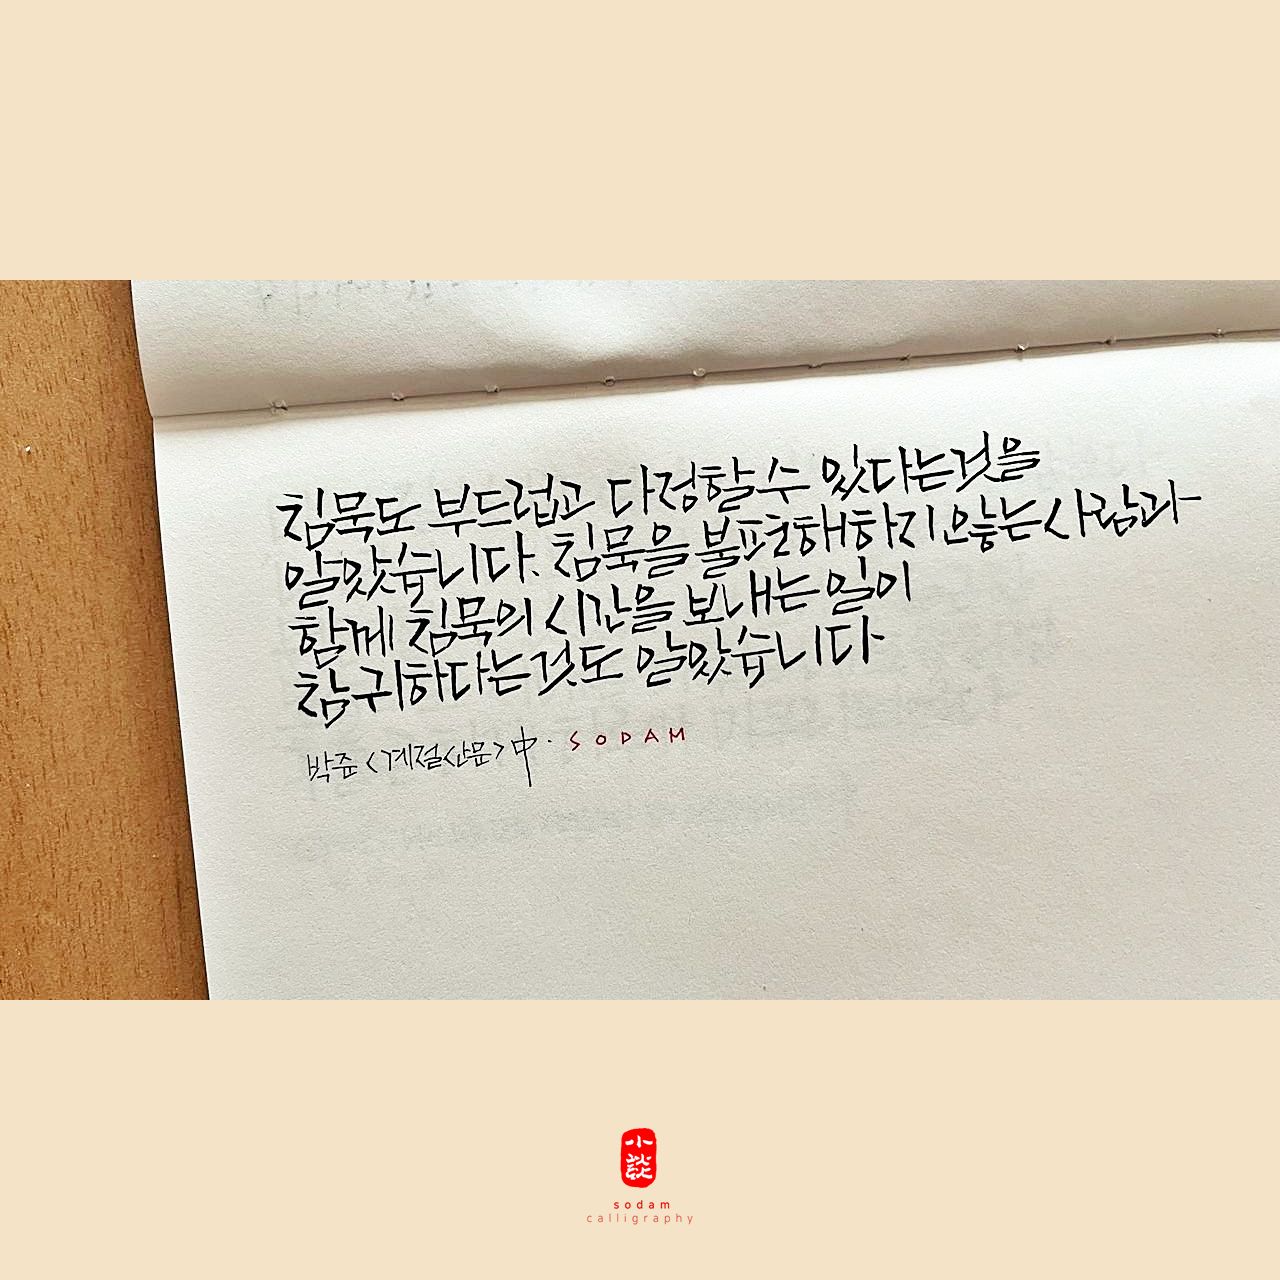 침묵도 부드럽고 다정할 수 있다는 것을
알았습니다. 침묵을 불편해하지 않는 사람과
함께 침묵의 시간을 보내는 일이
참 귀하다는 것도 알았습니다
박준 <계절산문> 中. SODAM
小談
sodam
calligraphy